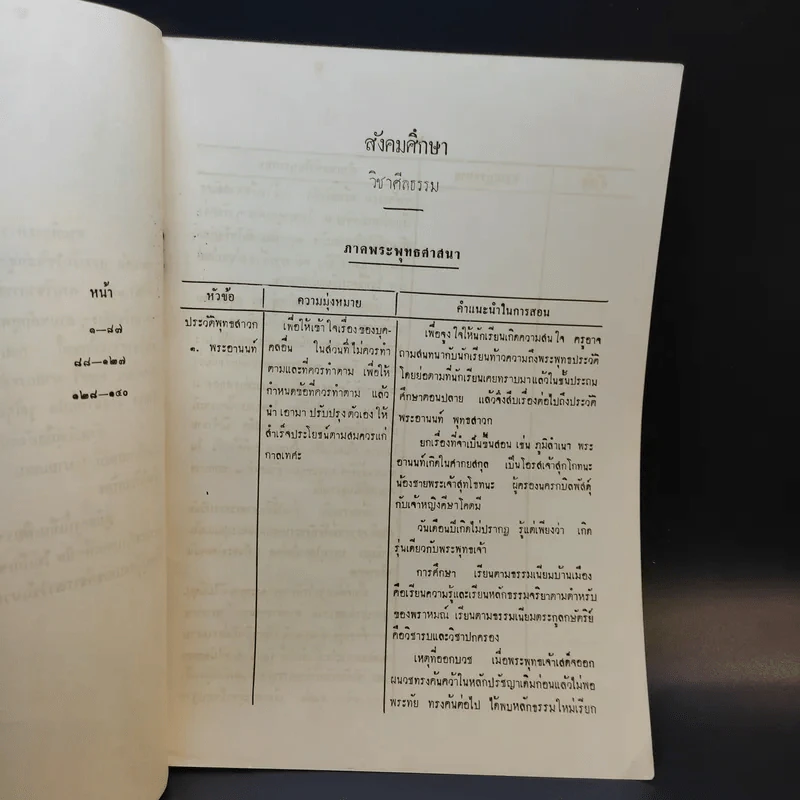 หน้า
๑—๘๗
๘๘—๑๒๗
๑๒๘—๑๔๐
สังคมศึกษา
วิชาศีลธรรม
ภาคพระพุทธศาสนา
หัวข้อ
ความมุ่งหมาย
คำแนะนำในการสอน
ประวัติพุทธสาวก
๑. พระอานนท์
เพื่อให้เข้าใจเรื่องของบุค-
คลอื่น ในส่วนที่ไม่ควรทำ
ตามและที่ควรทำตาม เพื่อให้
กำหนดข้อที่ควรทำตาม แล้ว
นำเอามาปรับปรุงตัวเอง ให้
สำเร็จประโยชน์ตามสมควรแก่
กาลเทศะ
เพื่อจูงใจให้นักเรียนเกิดความสนใจ ครูอาจ
ถามสนทนากับนักเรียนท้าวความถึงพระพุทธประวัติ
โดยย่อตามที่นักเรียนเคยทราบมาแล้วในชั้นประถม
ศึกษาตอนปลาย แล้วจึงสืบเรื่องต่อไปถึงประวัติ
พระอานนท์ พุทธสาวก
ยกเรื่องที่จำเป็นขึ้นสอน เช่น ภูมิลำเนา พระ
อานนท์เกิดในศากยสกุล เป็นโอรสเจ้าสุกโกทนะ
น้องชายพระเจ้าสุทโธทนะ ผู้ครองนครกบิลพัสดุ์
กับเจ้าหญิงคีษาโคตมี
วันเดือนปีเกิดไม่ปรากฏ รู้แต่เพียงว่า เกิด
รุ่นเดียวกับพระพุทธเจ้า
การศึกษา เรียนตามธรรมเนียมบ้านเมือง
คือเรียนความรู้และเรียนหลักธรรมจริยาตามตำหรับ
ของพราหมณ์ เรียนตามธรรมเนียมตระกูลกษัตริย์
คือวิชารบและวิชาปกครอง
เหตุที่ออกบวช เมื่อพระพุทธเจ้าเสด็จออก
ผนวชทรงค้นคว้าในหลักปรัชญาเดิมก่อนแล้วไม่พอ
พระทัย ทรงค้นต่อไป ได้พบหลักธรรมใหม่เรียก